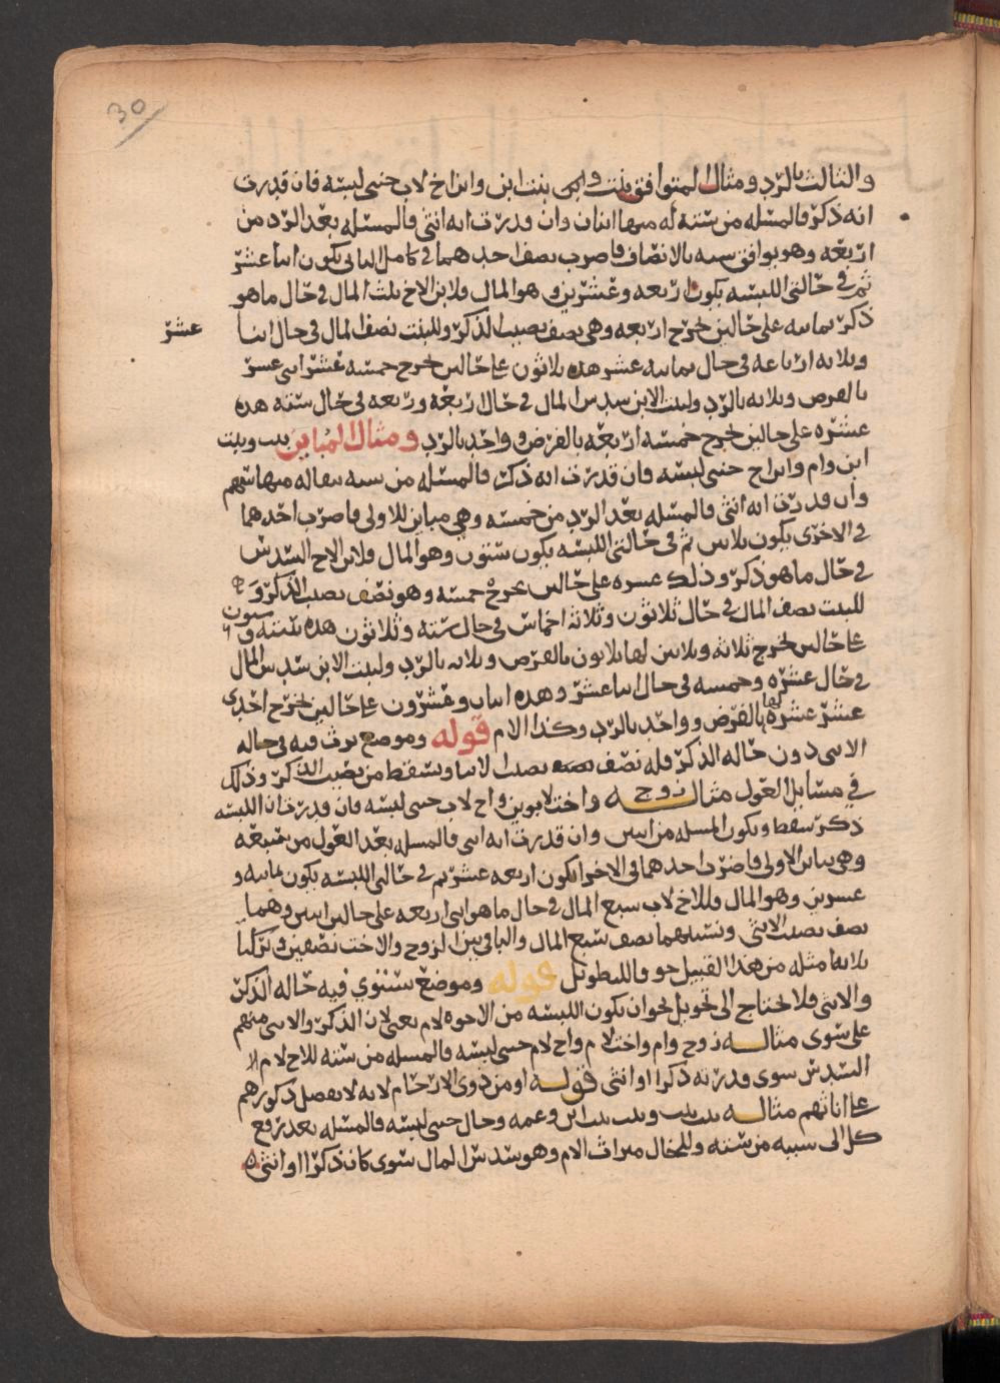 30
والثالث بالرد ومثال المتوافق بنت وام بنت ابن وابن اخ لاب خنثى لبسه فان قدرت
انه ذكر فالمسله من سته له منها اثنان وان قدرت انه انثى فالمسله بعد الرد من
اربعه وهو يوافق سته بالانصاف فاضرب نصف احدهما في كامل الثاني يكون اثنا عشر
ثم في حالتي اللبسه يكون اربعه وعشرين وهو المال فلابن الاخ ثلث المال في حال ما هو
ذكر ثمانيه على حالين تخرج اربعه وهي نصف نصيب الذكر وللبنت نصف المال في حال اثنا
عشر
وثلاثه ارباعه في حال ثمانيه عشر هذه ثلاثون على حالين تخرج خمسه عشر اثنى عشر
بالفرض وثلاثه بالرد ولبنت الابن سدس المال في حال اربعه وربعه في حال سته هذه
عشره على حالين تخرج خمسه اربعه بالفرض وواحد بالرد ومثال المباين بنت وبنت
ابن وام وابن اخ خنثى لبسه فان قدرت انه ذكر فالمسله من سته له منها سهم
وان قدرت انه انثى فالمسله بعد الرد من خمسه وهي مباين للاولى فاضرب احدهما
في الاخرى يكون ثلاثين ثم في حالتي اللبسه يكون ستون وهو المال فلابن الاخ السدس
في حال ما هو ذكر وذلك عشره على حالين تخرج خمسه وهو نصف نصيب الذكر و
للبنت نصف المال في حال ثلاثون وثلاثه اخماس في حال سته وثلاثون هذه سته و
ستون
على حالين تخرج ثلاثه وثلاثين لها ثلاثون بالفرض وثلاثه بالرد ولبنت الابن سدس المال
في حال عشره وخمسه في حال اثنا عشر وهذه اثنان وعشرون على حالين تخرج احدى
عشر عشره لها بالفرض وواحد بالرد وكذا الام قوله وموضع يرث فيه في حاله
الانثى دون حاله الذكر فله نصف نصيب الانثى ويسقط من نصيب الذكر وذلك
في مسايل العول مثاله زوج واخت لابوين واخ لاب خنثى لبسه فان قدرت ان اللبسه
ذكر سقط ويكون المسله من اثنين وان قدرت انه انثى فالمسله بعد العول من سبعه
وهي تباين الاولى فاضرب احدهما في الاخرى يكون اربعه عشر ثم في حالتي اللبسه يكون ثمانيه و
عشرين وهو المال فللاخ لاب سبع المال في حال ما هو انثى اربعه على حالين اثنين وهما
نصف نصيب الانثى ونسبتهما نصف سبع المال والباقي بين الزوج والاخت نصفين و
مثله من هذا القبيل قوله وموضع يستوي فيه حاله الذكر
والانثى فلا تحتاج الى تحويل نحو ان يكون اللبسه من الاخوه لام يعني لان الذكر والانثى منهم
على سوى مثاله زوج وام واخت لام واخ لام خنثى لبسه فالمسله من سته للاخ لام
السدس سوى قدرته ذكرا او انثى قوله او من ذوي الارحام لانه لا يفضل ذكورهم
على اناثهم مثاله بنت بنت وبنت بنت ابن وعمه وخال خنثى لبسه فالمسله بعد رفع
كل الى سببه من سته وللخال ميراث الام وهو سدس المال سوى كان ذكرا او انثى